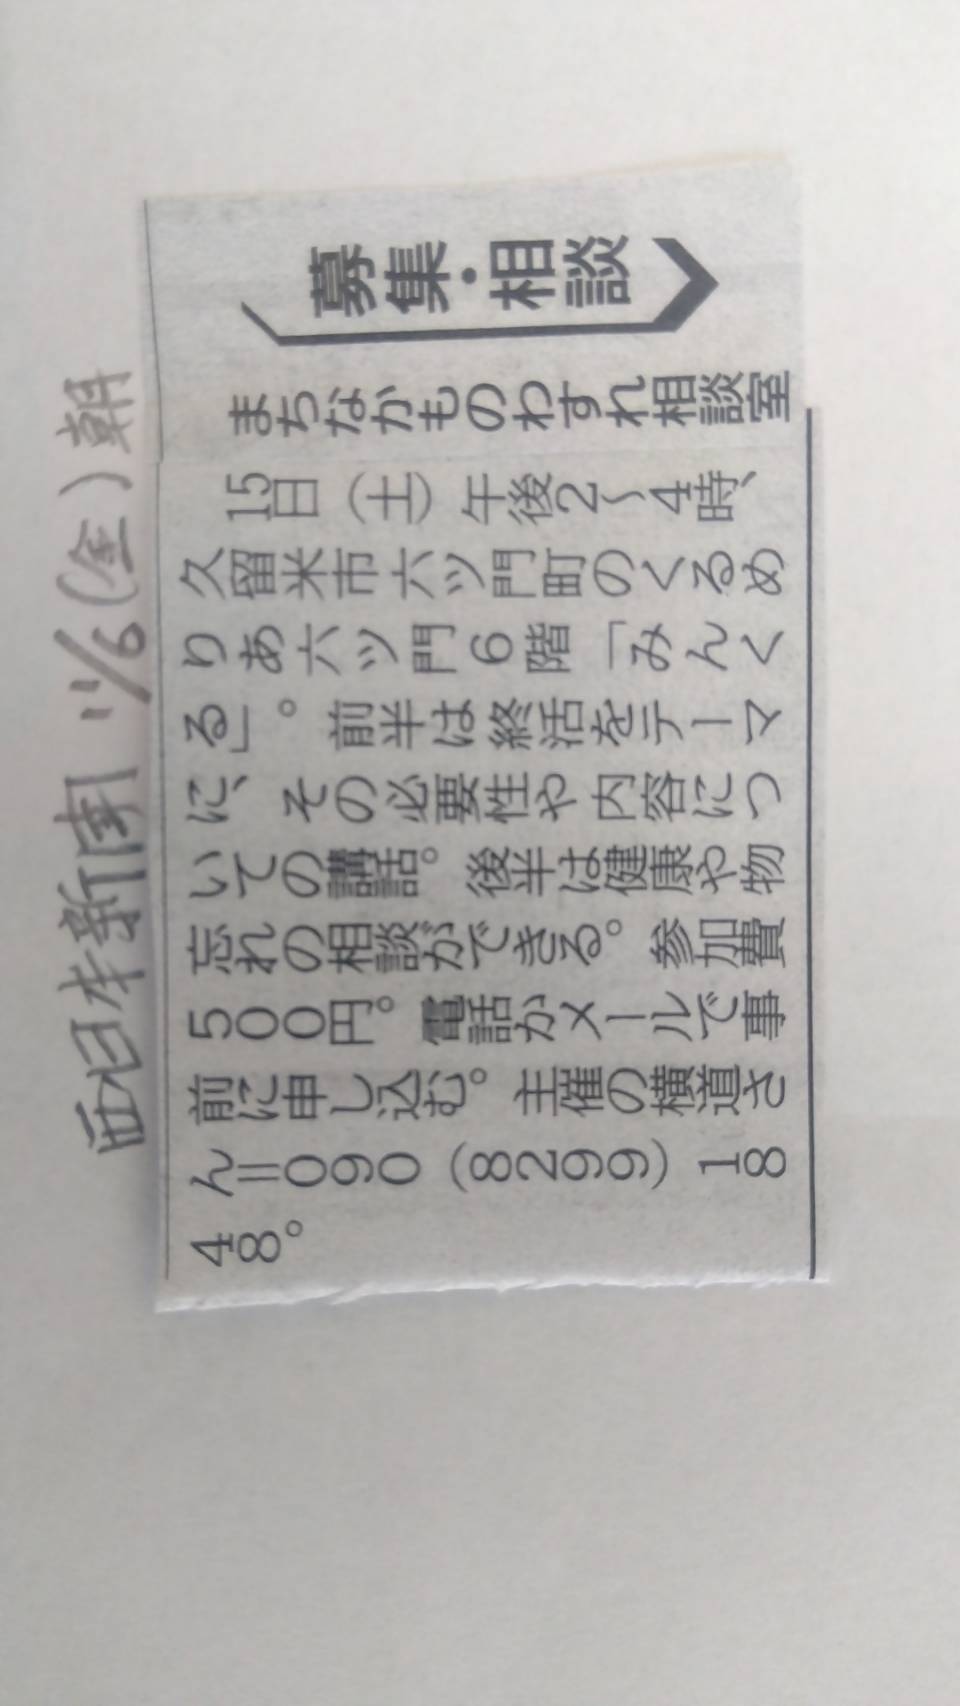 西日本新聞 11/6(金)朝
募集・相談
まちなかものわすれ相談室
15日(土)午後2〜4時、
久留米市六ツ門町のくるめ
りあ六ツ門6階「みんく
る」。前半は終活をテーマ
に、その必要性や内容につ
いての講話。後半は健康や物
忘れの相談ができる。参加費
500円。電話かメールで事
前に申し込む。主催の横道さ
ん=090(8299)18
48。